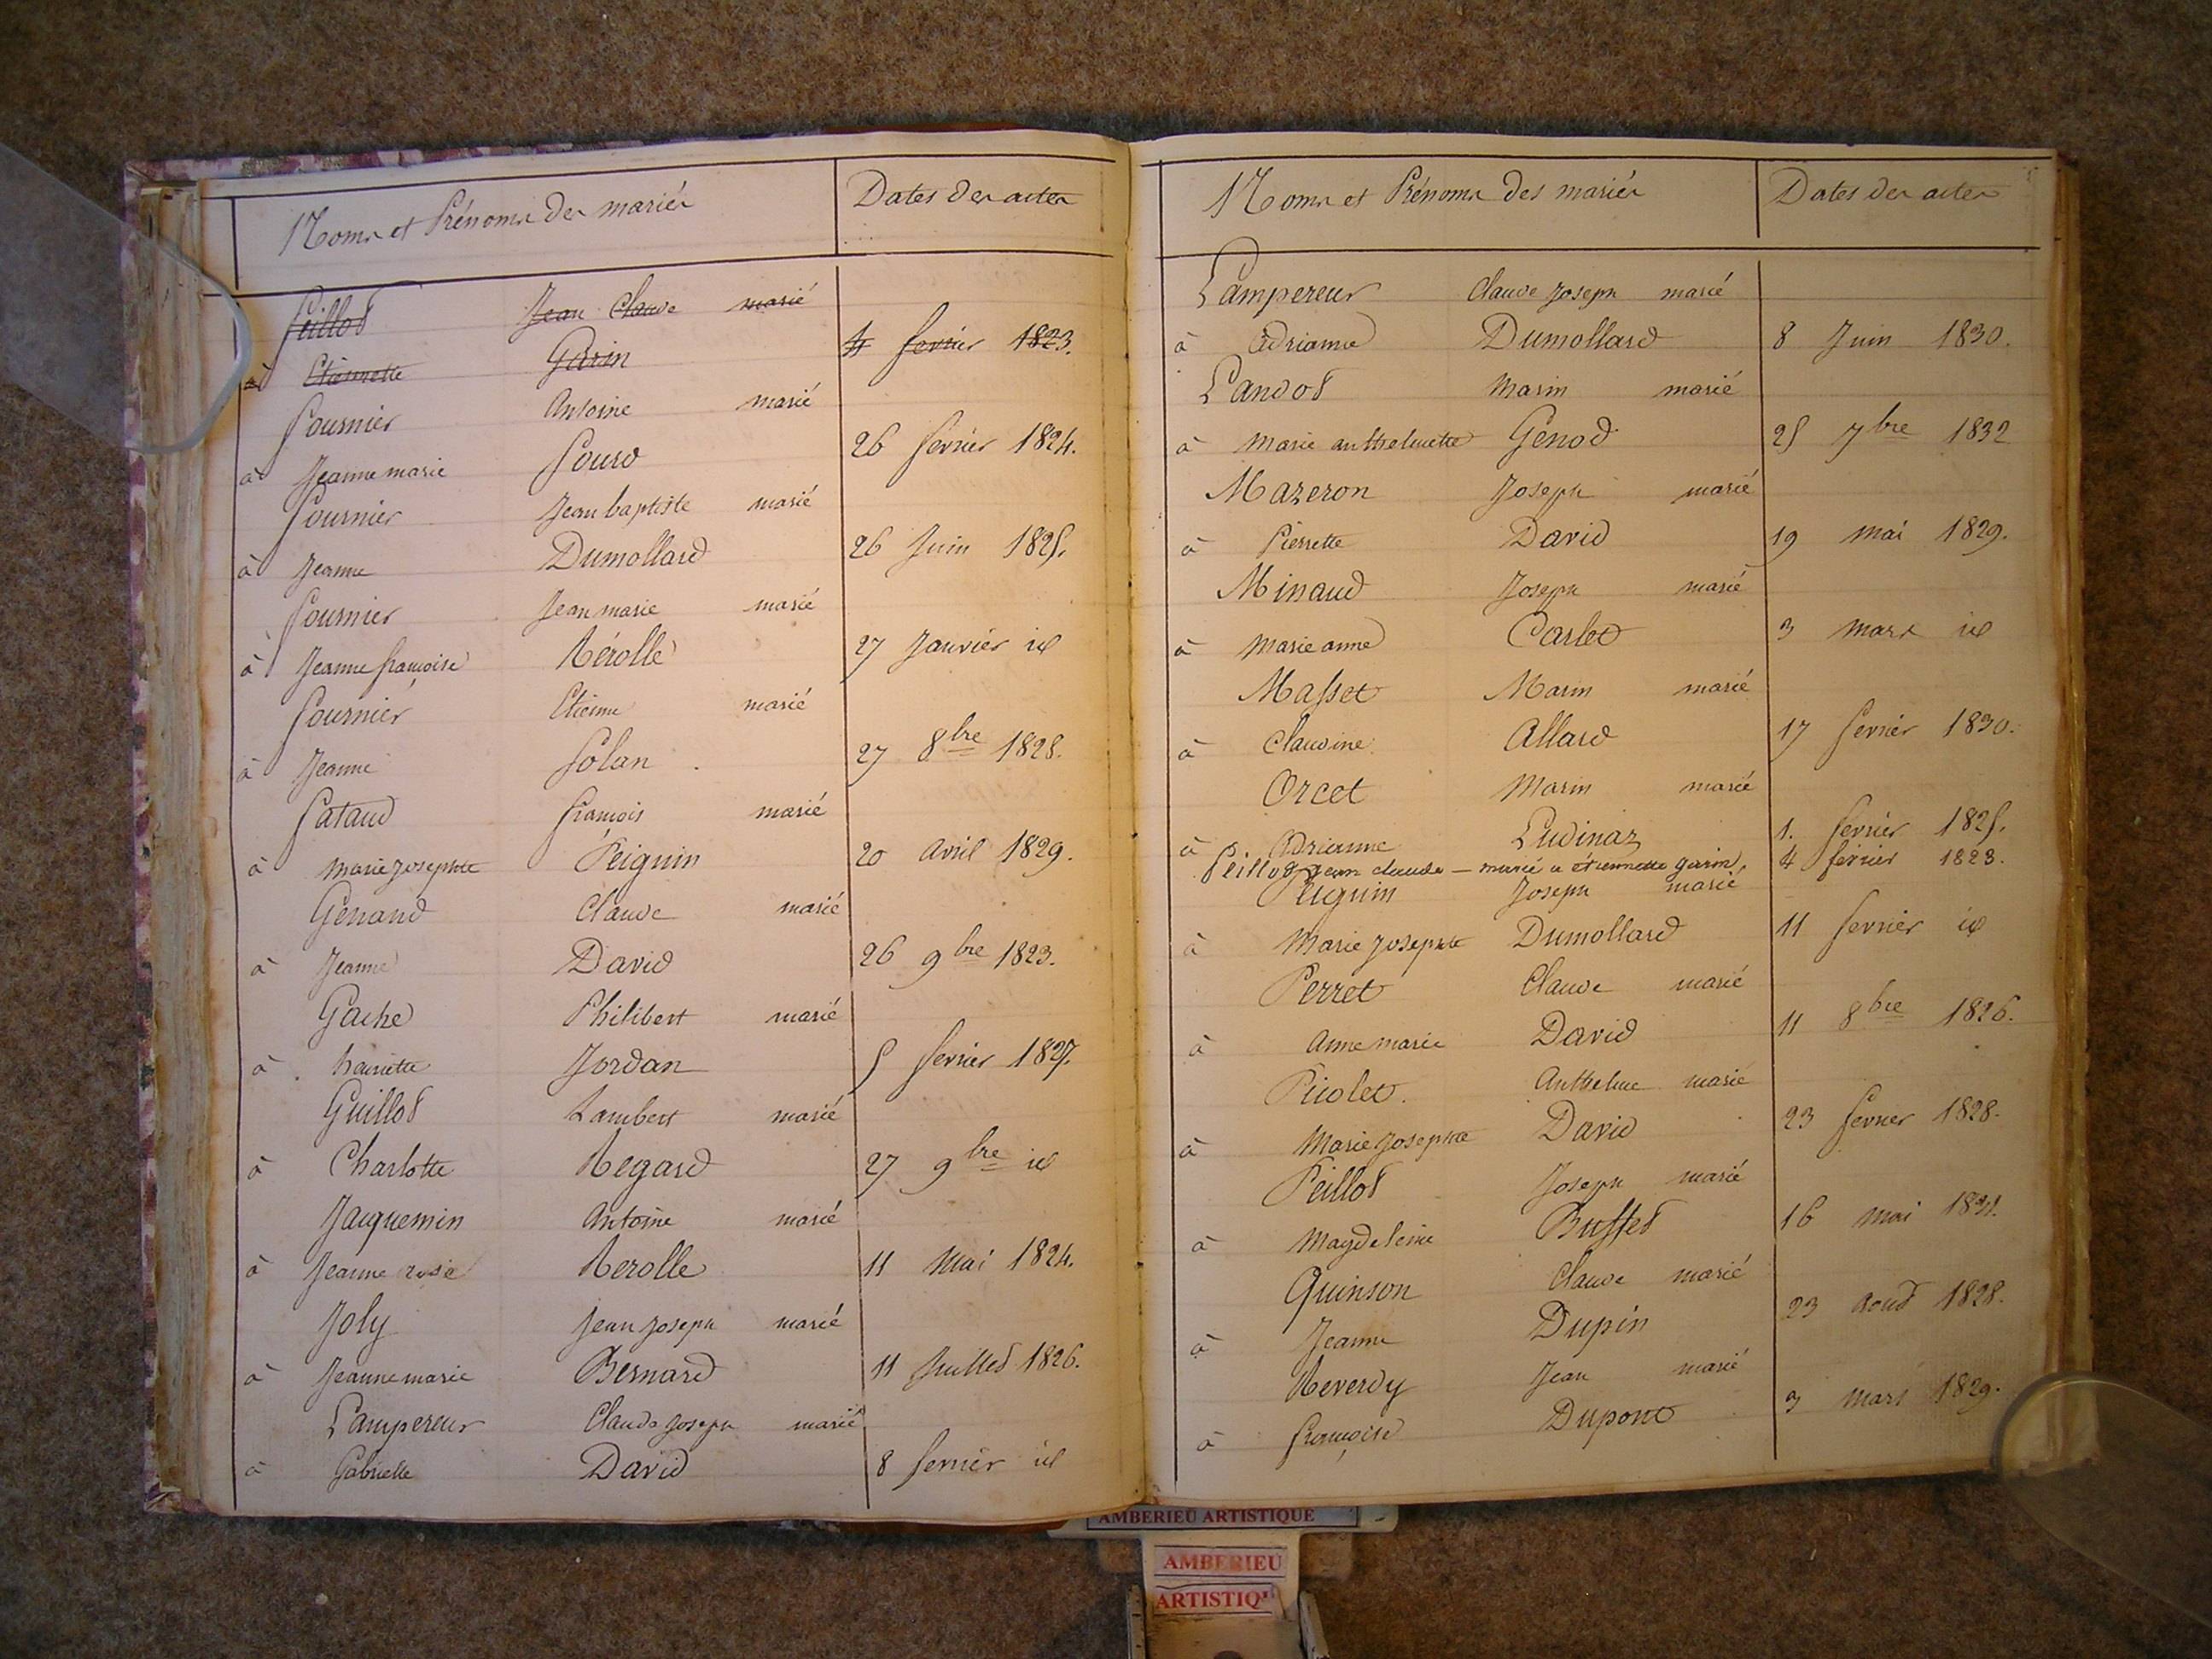 Noms et Prénoms des mariés Dates des actes
Feillot Jean Claude marié
à Etiennette Garin 4 fevrier 1823.
Fournier Antoine marié
à Jeanne marie 26 fevrier 1824.
Fournier Jean baptiste marié
à Jeanne Dumollard 26 Juin 1825.
Fournier Jean marie marié
à Jeanne françoise Rérolle 27 Janvier id
Fournier Etienne marié
à Jeanne Folan 27 8bre 1828.
Fataud françois marié
à Marie Josephte Peiguin 20 Avril 1829.
Genaud Claude marié
à Jeanne David 26 9bre 1823.
Gache Philibert marié
à Jordan 5 fevrier 1827.
Guillot Lambert marié
à Charlotte Regard 27 9bre id
Jacquemin Antoine marié
à Jeanne rose Rerolle 11 Mai 1824.
Joly Jean Joseph marié
à Jeanne marie Bernard 11 Juillet 1826.
Lampereur Claude Joseph marié
à Gabrielle David 8 fevrier id
Noms et Prénoms des mariés Dates des actes
Lampereur Claude Joseph marié
à Adrianne Dumollard 8 Juin 1830.
Landot Marin marié
à Marie anthelmette Genod 25 7bre 1832
Mazeron Joseph marié
à Pierrette David 19 Mai 1829.
Minaud Joseph marié
à Marie anne Carlet 3 Mars id
Masset Marin marié
à Claudine Allard 17 fevrier 1830.
Orcet Marin marié
à Adrianne Ludinaz 1. fevrier 1825.
Peillot jean claude — marié a étiennette garin. 4 février 1823.
Peiguin Joseph marié
à Marie Josephte Dumollard 11 fevrier id
Perret Claude marié
à Anne marie David 11 8bre 1826.
Picolet. Anthelme marié
à Marie Josephte David 23 fevrier 1828.
Peillot Joseph marié
à Magdeleine Buffet 16 Mai
Quinson Claude marié
à Jeanne Dupin 23 Aout 1828.
Reverdy Jean marié
à françoise Dupont 3 Mars 1829.
AMBERIEU ARTISTIQUE
AMBERIEU
ARTISTIQU